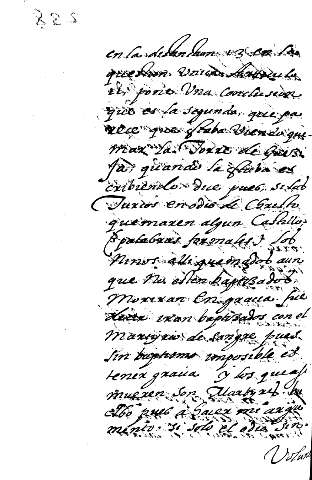 225
en la distincion 13 en la
question Unica Articula
re, pone Una Conclusion
que es la segunda, que pa
rece que staba viendo que
mar la Torre de
ja, quando la staba es
cribiendo. Dice pues. si los
Turcos en odio de Christo
quemaren algun Castillo
palabras formales) los
Ninos alli quemados aun
que No esten baptizados
Moriran En gracia
iran baptizados con el
Martyrio de sangre pues
sin baptismo imposible es
tener gracia y los que asi
mueren son Martyres
pues a hacer mi argu
mento. si solo el odio sin